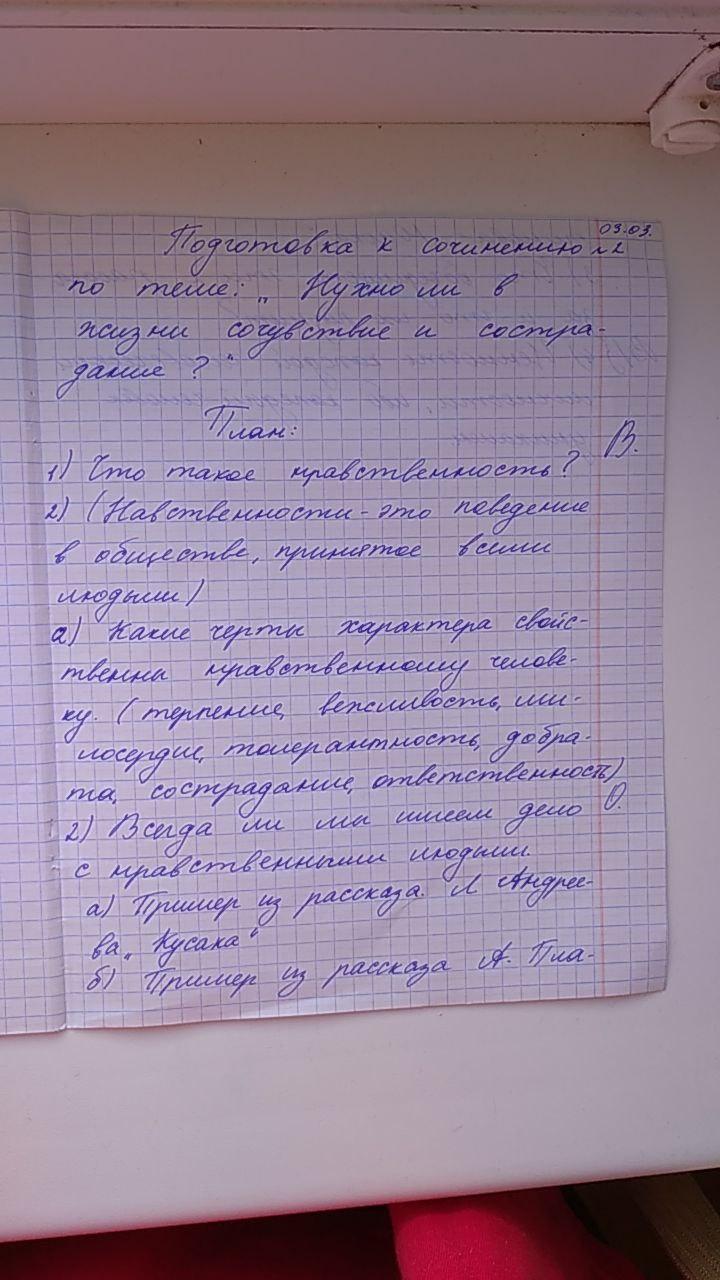 03.03.
Подготовка к сочинению №2
по теме: „Нужно ли в
жизни сочувствие и состра-
дание?"
План:
В.
1) Что такое нравственность?
2) (Навственности - это поведение
в обществе, принятое всеми
людьми)
а) Какие черты характера свойс-
твенны нравственному челове-
ку. (терпение, вежливость, ми-
лосердие, толерантность, добра-
та, сострадание, ответственность)
О.
2) Всегда ли мы имеем дело
с нравственными людьми.
а) Пример из рассказа. Л Андрее-
ва „Кусака"
б) Пример из рассказа А. Пла-